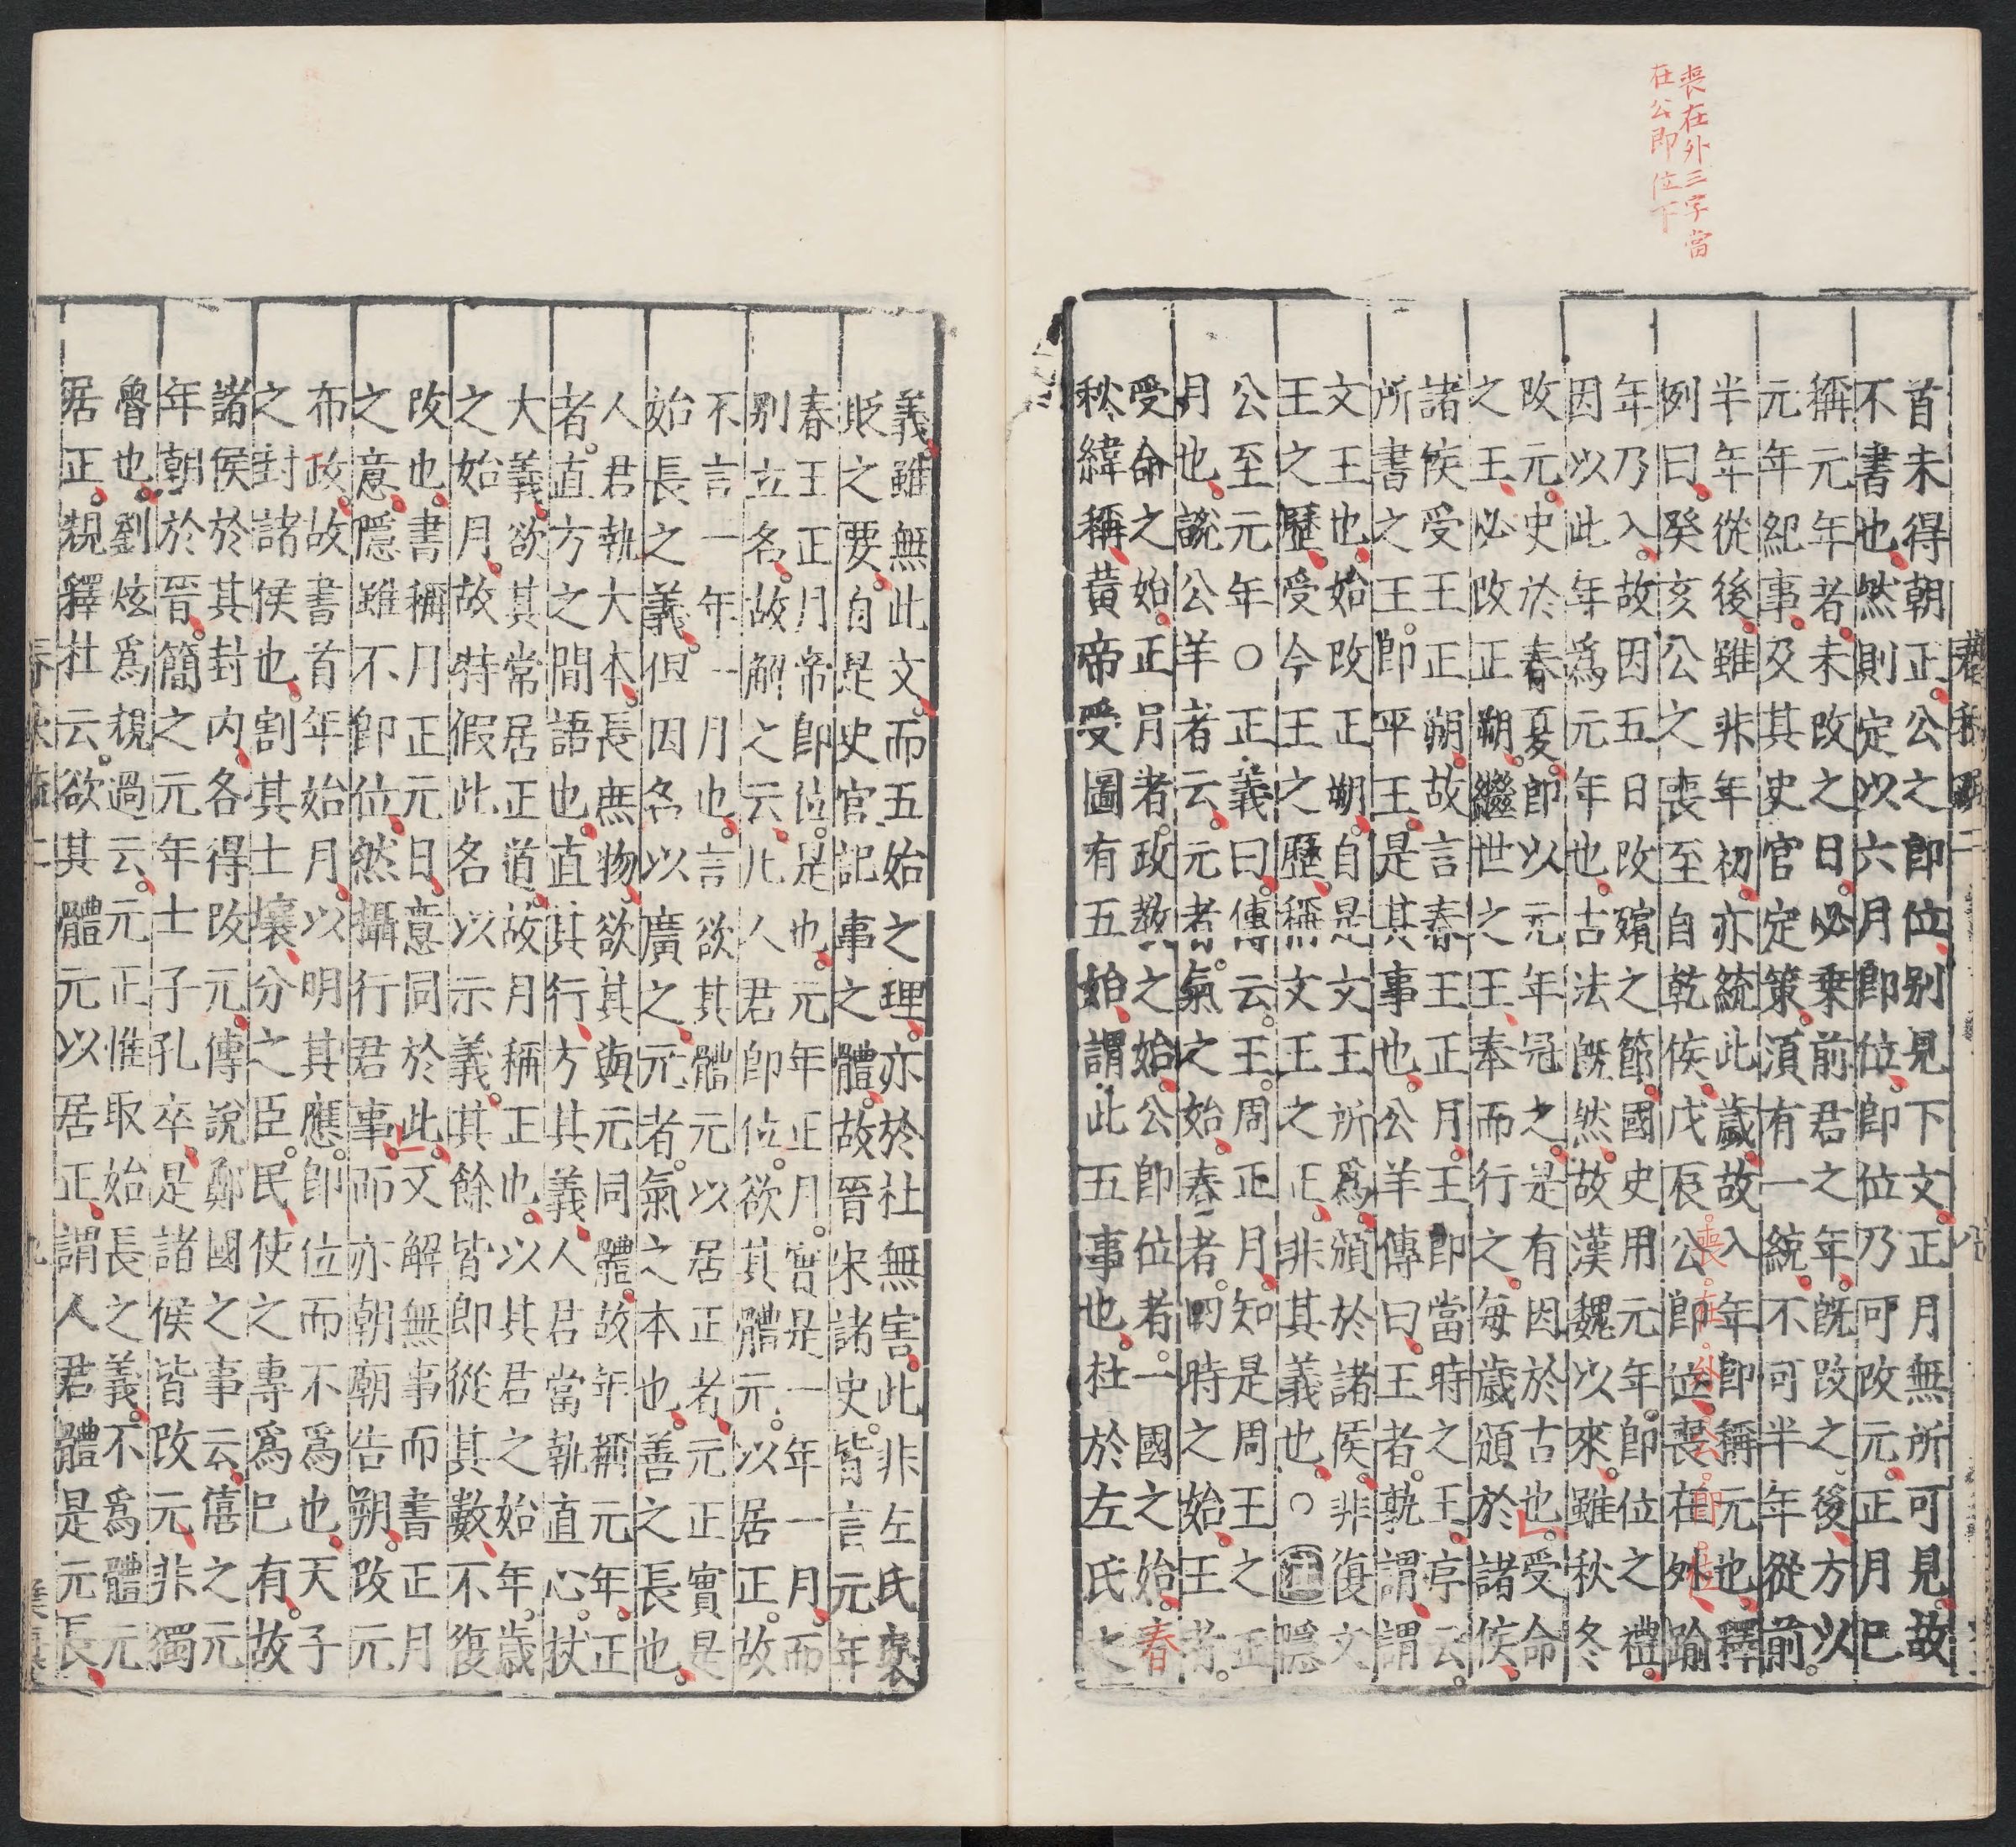 喪在外三字當
在公即位下
首未得朝正公之即位别見下文正月無所可見故
不書也然則定以六月即位即位乃可改元正月巳
稱元年者未改之日必乗前君之年旣改之後方以
元年紀事及其史官定策湏有一統不可半年從前
半年從後雖非年初亦統此歲故入年即稱元也釋
例曰癸亥公之喪至自乾侯戊辰公即位喪在外踰
年乃入故因五日改殯之節國史用元年即位之禮
因以此年爲元年也古法旣然故漢魏以來雖秋冬
改元史於春夏即以元年冠之是有因於古也受命
之王必改正朔繼世之王奉而行之每歲頒於諸侯
諸侯受王正朔故言春王正月王即當時之王序云
所書之王即平王是其事也公羊傳曰王者孰謂謂
文王也始改正朔自是文王所爲頒於諸侯非復文
王之歷受今王之歷稱文王之正非其義也○注隱
公至元年○正義曰傳云王周正月知是周王之正
月也說公羊者云元者氣之始春者四時之始王者
受命之始正月者政教之始公即位者一國之始春
秋緯稱黃帝受圖有五始謂此五事也杜於左氏之
義雖無此文而五始之理亦於杜無害此非左氏褒
貶之要自是史官記事之體故晉宋諸史皆言元年
春王正月帝即位是也元年正月實是一年一月而
别立名故解之云凡人君即位欲其體元以居正故
不言一年一月也言欲其體元以居正者元正實是
始長之義但因名以廣之元者氣之本也善之長也
人君執大本長庶物欲其與元同體故年稱元年正
者直方之間語也直其行方其義人君當執直心扙
大義欲其常居正道故月稱正也以其君之始年歲
之始月故特假此名以示義其餘皆即從其數不復
改也書稱月正元日意同於此文解無事而書正月
之意隱雖不即位然攝行君事而亦朝廟告朔改元
布政故書首年始月以明其應即位而不爲也天子
之封諸侯也割其士壤分之臣民使之專爲巳有故
諸侯於其封内各得改元傳說鄭國之事云僖之元
年朝於晉簡之元年士子孔卒是諸侯皆改元非獨
魯也劉炫爲規過云元正惟取始長之義不爲體元
居正規釋杜云欲其體元以居正謂人君體是元長